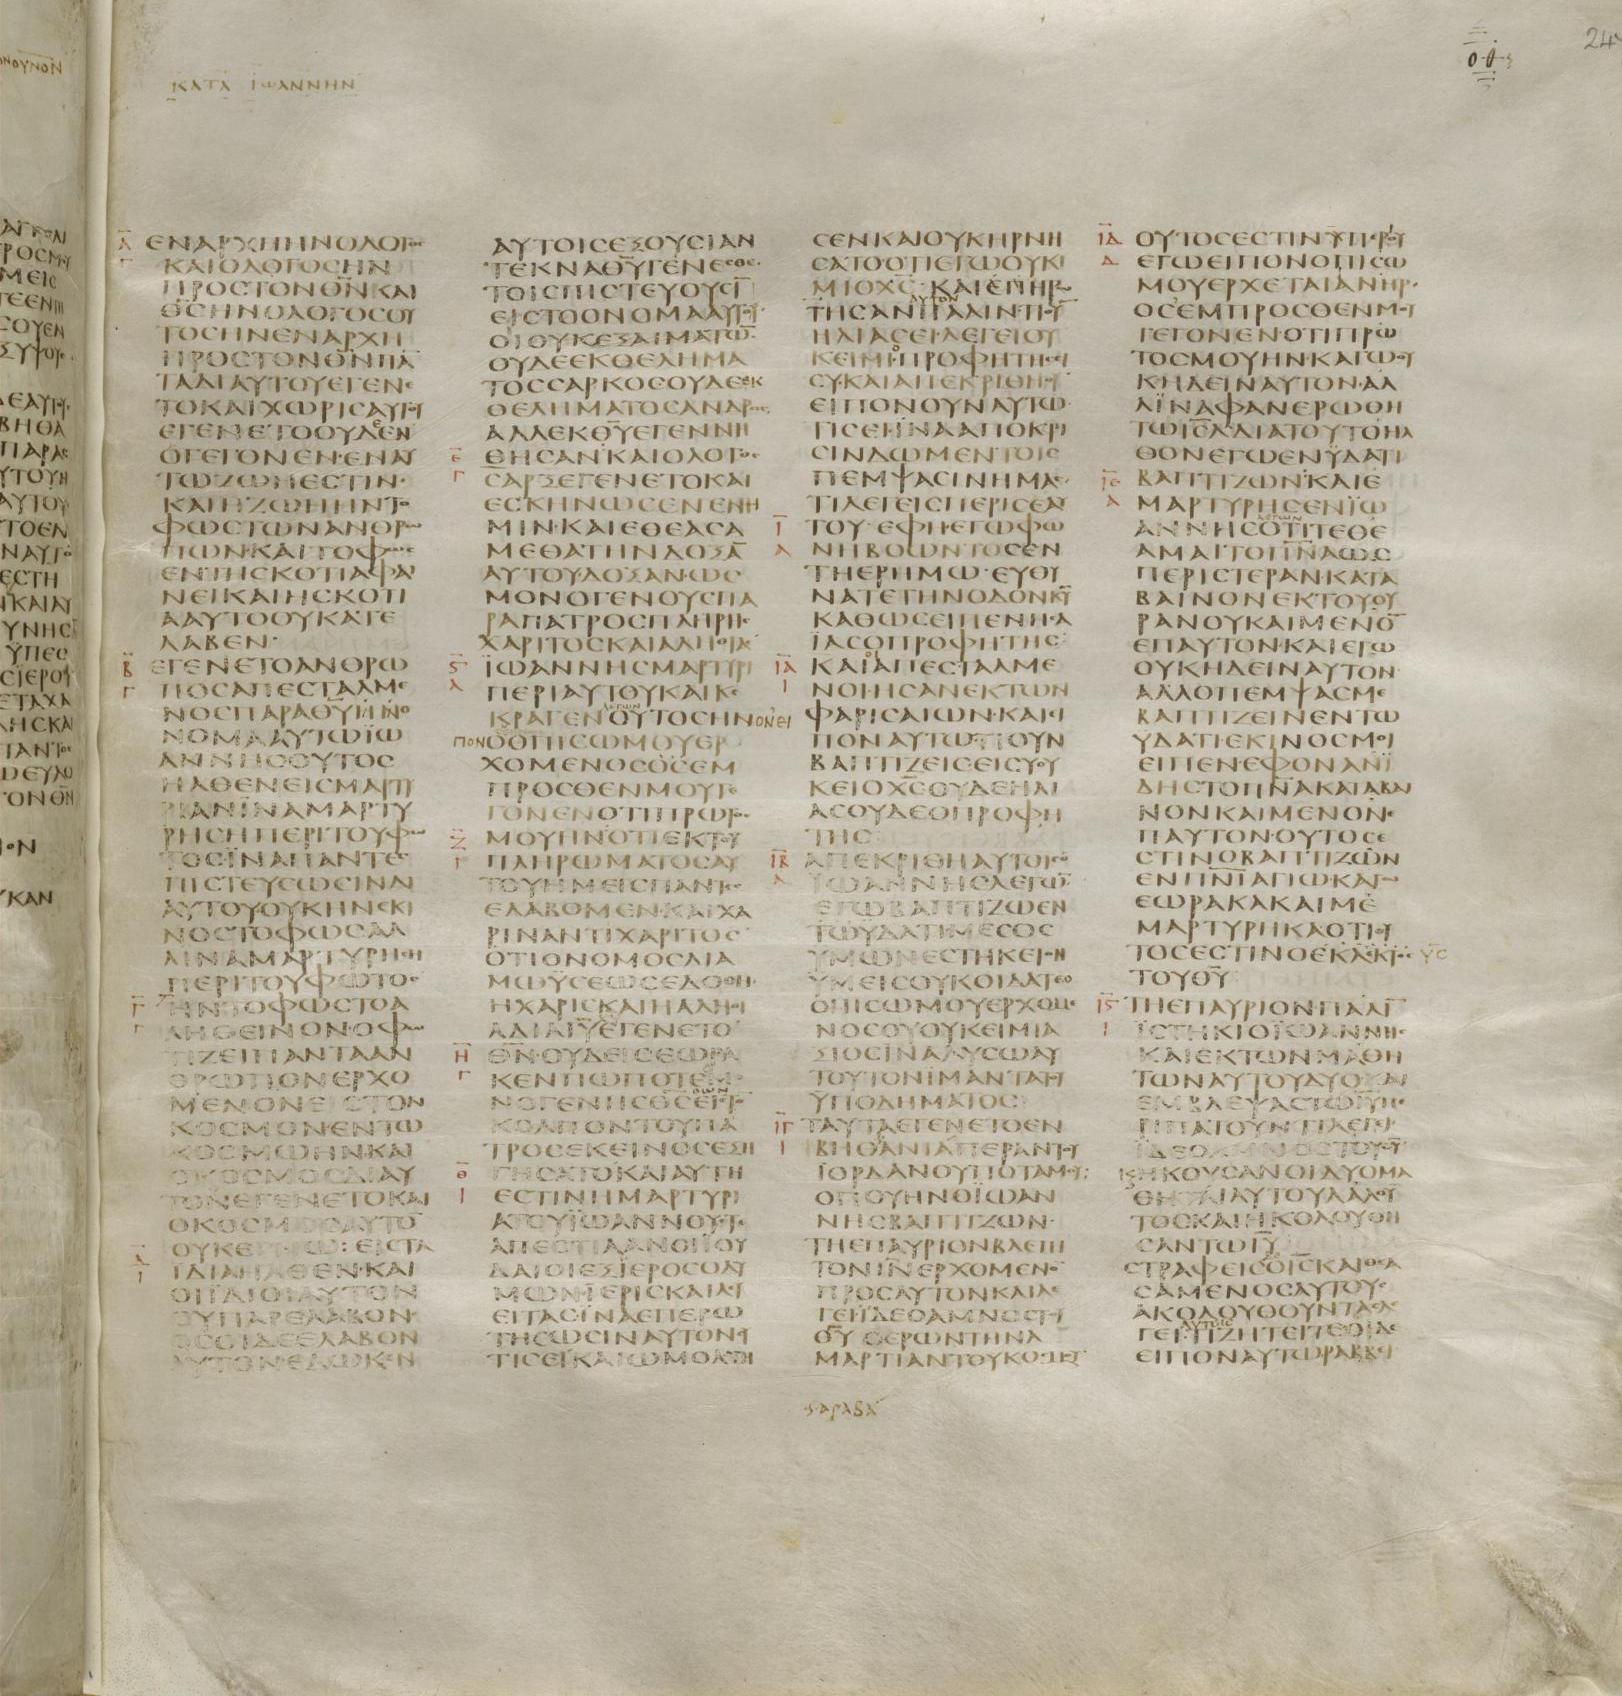 ΚΑΤΑ ΙΩΑΝΝΗΝ
ΕΝΑΡΧΗΗΝΟΛΟΓΟϹ
ΚΑΙΟΛΟΓΟϹΗΝ
ΠΡΟϹΤΟΝΘΝΚΑΙ
ΘϹΗΝΟΛΟΓΟϹΟΥ
ΤΟϹΗΝΕΝΑΡΧΗ
ΠΡΟϹΤΟΝΘΝΠΑ
ΤΑΔΙΑΥΤΟΥΕΓΕΝΕ
ΤΟΚΑΙΧΩΡΙϹΑΥΤΟΥ
ΕΓΕΝΕΤΟΟΥΔΕΝ
ΟΓΕΓΟΝΕΝ·ΕΝΑΥ
ΤΩΖΩΗΕϹΤΙΝ·
ΚΑΙΗΖΩΗΗΝΤΟ
ΦΩϹΤΩΝΑΝΘΡΩ
ΠΩΝ·ΚΑΙΤΟΦΩϹ
ΕΝΤΗϹΚΟΤΙΑΦΑΙ
ΝΕΙΚΑΙΗϹΚΟΤΙ
ΑΑΥΤΟΟΥΚΑΤΕ
ΛΑΒΕΝ·
ΕΓΕΝΕΤΟΑΝΘΡΩ
ΠΟϹΑΠΕϹΤΑΛΜΕ
ΝΟϹΠΑΡΑΘΥΗΝΟ
ΝΟΜΑΑΥΤΩΙΩ
ΑΝΝΗϹΟΥΤΟϹ
ΗΛΘΕΝΕΙϹΜΑΡΤΥ
ΡΙΑΝΙΝΑΜΑΡΤΥ
ΡΗϹΗΠΕΡΙΤΟΥΦΩ
ΤΟϹΙΝΑΠΑΝΤΕϹ
ΠΙϹΤΕΥϹΩϹΙΝΔΙ
ΑΥΤΟΥΟΥΚΗΝΕΚΙ
ΝΟϹΤΟΦΩϹΑΛ
ΛΙΝΑΜΑΡΤΥΡΗϹΗ
ΠΕΡΙΤΟΥΦΩΤΟϹ
ΗΝΤΟΦΩϹΤΟΑ
ΛΗΘΕΙΝΟΝ·ΟΦΩ
ΤΙΖΕΙΠΑΝΤΑΑΝ
ΘΡΩΠΟΝΕΡΧΟ
ΜΕΝΟΝΕΙϹΤΟΝ
ΚΟϹΜΟΝ·ΕΝΤΩ
ΚΟϹΜΩΗΝ·ΚΑΙ
ΟΚΟϹΜΟϹΔΙΑΥ
ΤΟΝΕΓΕΝΕΤΟΚΑΙ
ΟΚΟϹΜΟϹΑΥΤΟ
ΟΥΚΕΓΝΩ:ΕΙϹΤΑ
ΙΔΙΑΗΛΘΕΝ·ΚΑΙ
ΟΙΙΔΙΟΙΑΥΤΟΝ
ΟΥΠΑΡΕΛΑΒΟΝ·
ΟϹΟΙΔΕΕΛΑΒΟΝ
ΑΥΤΟΝΕΔΩΚΕΝ
ΑΥΤΟΙϹΕΞΟΥϹΙΑΝ
ΤΕΚΝΑΘΥΓΕΝΕϹΘΕ·
ΤΟΙϹΠΙϹΤΕΥΟΥϹΙ
ΕΙϹΤΟΟΝΟΜΑΑΥΤΟΥ
ΟΙΟΥΚΕΞΑΙΜΑΤΩ
ΟΥΔΕΕΚΘΕΛΗΜΑ
ΤΟϹϹΑΡΚΟϹΟΥΔΕΕΚ
ΘΕΛΗΜΑΤΟϹΑΝΔΡΟϹ
ΑΛΛΕΚΘΥΕΓΕΝΝΗ
ΘΗϹΑΝ·ΚΑΙΟΛΟΓΟϹ
ϹΑΡΞΕΓΕΝΕΤΟΚΑΙ
ΕϹΚΗΝΩϹΕΝΕΝΗ
ΜΙΝ·ΚΑΙΕΘΕΑϹΑ
ΜΕΘΑΤΗΝΔΟΞΑ
ΑΥΤΟΥΔΟΞΑΝ·ΩϹ
ΜΟΝΟΓΕΝΟΥϹΠΑ
ΡΑΠΑΤΡΟϹΠΛΗΡΗϹ
ΧΑΡΙΤΟϹΚΑΙΑΛΗΘΙΑϹ
ΙΩΑΝΝΗϹΜΑΡΤΥΡΙ
ΠΕΡΙΑΥΤΟΥΚΑΙΚΕ
ΚΡΑΓΕΝΟΥΤΟϹΗΝΟΝΕΙ
ΠΟΝΟΟΠΙϹΩΜΟΥΕΡ
ΧΟΜΕΝΟϹΟϹΕΜ
ΠΡΟϹΘΕΝΜΟΥΓΕ
ΓΟΝΕΝΟΤΙΠΡΩΤΟϹ
ΜΟΥΗΝΟΤΙΕΚΤΟΥ
ΠΛΗΡΩΜΑΤΟϹΑΥ
ΤΟΥΗΜΕΙϹΠΑΝΤΕϹ
ΕΛΑΒΟΜΕΝ·ΚΑΙΧΑ
ΡΙΝΑΝΤΙΧΑΡΙΤΟϹ
ΟΤΙΟΝΟΜΟϹΔΙΑ
ΜΩΥϹΕΩϹΕΔΟΘΗ·
ΗΧΑΡΙϹΚΑΙΗΑΛΗΘΙ
ΑΔΙΑΙΥΕΓΕΝΕΤΟ
ΘΝ·ΟΥΔΕΙϹΕΩΡΑ
ΚΕΝΠΩΠΟΤΕΜΟ
ΝΟΓΕΝΗϹΘϹΕΙϹΤΟΝ
ΚΟΛΠΟΝΤΟΥΠΑ
ΤΡΟϹΕΚΕΙΝΟϹΕΞΗ
ΓΗϹΑΤΟΚΑΙΑΥΤΗ
ΕϹΤΙΝΗΜΑΡΤΥΡΙ
ΑΤΟΥΙΩΑΝΝΟΥ·ΟΤΕ
ΑΠΕϹΤΙΛΑΝΟΙΙΟΥ
ΔΑΙΟΙΕΞΙΕΡΟϹΟΛΥ
ΜΩΝ·ΙΕΡΙϹΚΑΙΛΕΥ
ΕΙΤΑϹΙΝΑΕΠΕΡΩ
ΤΗϹΩϹΙΝΑΥΤΟΝϹΥ
ΤΙϹΕΙΚΑΙΩΜΟΛΟΓΗ
ϹΕΝΚΑΙΟΥΚΗΡΝΗ
ϹΑΤΟΟΤΙΕΓΩΟΥΚΙ
ΜΙΟΧϹ·ΚΑΙΕΠΗΡΩ
ΤΗϹΑΝΠΑΛΙΝ·ΤΙΟΥ
ΗΛΙΑϹΕΙ·ΛΕΓΕΙΟΥ
ΚΕΙΜΙ·ΠΡΟΦΗΤΗϹΕΙ
ϹΥ·ΚΑΙΑΠΕΚΡΙΘΗΟΥ
ΕΙΠΟΝΟΥΝΑΥΤΩ
ΤΙϹΕΙ·ΙΝΑΑΠΟΚΡΙ
ϹΙΝΔΩΜΕΝΤΟΙϹ
ΠΕΜΨΑϹΙΝΗΜΑϹ
ΤΙΛΕΓΕΙϹΠΕΡΙϹΕΑΥ
ΤΟΥ·ΕΦΗ·ΕΓΩΦΩ
ΝΗΒΟΩΝΤΟϹΕΝ
ΤΗΕΡΗΜΩ·ΕΥΘΥ
ΝΑΤΕΤΗΝΟΔΟΝΚΥ
ΚΑΘΩϹΕΙΠΕΝΗϹΑ
ΙΑϹΟΠΡΟΦΗΤΗϹ
ΚΑΙΑΠΕϹΤΑΛΜΕ
ΝΟΙΗϹΑΝΕΚΤΩΝ
ΦΑΡΙϹΑΙΩΝ·ΚΑΙΕΙ
ΠΟΝΑΥΤΩΤΙΟΥΝ
ΒΑΠΤΙΖΕΙϹΕΙϹΥΟΥ
ΚΕΙΟΧϹΟΥΔΕΗΛΙ
ΑϹΟΥΔΕΟΠΡΟΦΗ
ΤΗϹ
ΑΠΕΚΡΙΘΗΑΥΤΟΙϹΟ
ΙΩΑΝΝΗϹΛΕΓΩ
ΕΓΩΒΑΠΤΙΖΩΕΝ
ΤΩΥΔΑΤΙΜΕϹΟϹ
ΥΜΩΝΕϹΤΗΚΕΙΟΝ
ΥΜΕΙϹΟΥΚΟΙΔΑΤΕΟ
ΟΠΙϹΩΜΟΥΕΡΧΟΜΕ
ΝΟϹΟΥΟΥΚΕΙΜΙΑ
ΞΙΟϹΙΝΑΛΥϹΩΑΥ
ΤΟΥΤΟΝΙΜΑΝΤΑΤΟΥ
ΥΠΟΔΗΜΑΤΟϹ
ΤΑΥΤΑΕΓΕΝΕΤΟΕΝ
ΒΗΘΑΝΙΑΠΕΡΑΝΤΟΥ
ΙΟΡΔΑΝΟΥΠΟΤΑΜΟΥ:
ΟΠΟΥΗΝΟΙΩΑΝ
ΝΗϹΒΑΠΤΙΖΩΝ·
ΤΗΕΠΑΥΡΙΟΝΒΛΕΠΙ
ΤΟΝΙΝΕΡΧΟΜΕΝΟ
ΠΡΟϹΑΥΤΟΝΚΑΙΛΕ
ΓΕΙΙΔΕΟΑΜΝΟϹΤΟΥ
ΘΥ ΟΕΡΩΝΤΗΝΑ
ΜΑΡΤΙΑΝΤΟΥΚΟϹΜΟΥ
ΟΥΤΟϹΕϹΤΙΝΥΠΕΡΟΥ
ΕΓΩΕΙΠΟΝΟΠΙϹΩ
ΜΟΥΕΡΧΕΤΑΙΑΝΗΡ·
ΟϹΕΜΠΡΟϹΘΕΝΜΟΥ
ΓΕΓΟΝΕΝ·ΟΤΙΠΡΩ
ΤΟϹΜΟΥΗΝ·ΚΑΓΩΟΥ
ΚΗΔΕΙΝΑΥΤΟΝ·ΑΛ
ΛΙΝΑΦΑΝΕΡΩΘΗ
ΤΩΙϹΛΔΙΑΤΟΥΤΟΗΛ
ΘΟΝΕΓΩΕΝΥΔΑΤΙ
ΒΑΠΤΙΖΩΝ·ΚΑΙΕ
ΜΑΡΤΥΡΗϹΕΝΙΩ
ΑΝΝΗϹΟΤΙΤΕΘΕ
ΑΜΑΙΤΟΠΝΑΩϹ
ΠΕΡΙϹΤΕΡΑΝ·ΚΑΤΑ
ΒΑΙΝΟΝΕΚΤΟΥΟΥ
ΡΑΝΟΥΚΑΙΜΕΝΟ
ΕΠΑΥΤΟΝ·ΚΑΙΕΓΩ
ΟΥΚΗΔΕΙΝΑΥΤΟΝ
ΑΛΛΟΠΕΜΨΑϹΜΕ
ΒΑΠΤΙΖΕΙΝΕΝΤΩ
ΥΔΑΤΙ·ΕΚΙΝΟϹΜΟΙ
ΕΙΠΕΝ·ΕΦΟΝΑΝΙ
ΔΗϹΤΟΠΝΑΚΑΤΑΒΑΙ
ΝΟΝΚΑΙΜΕΝΟΝΕ
ΠΑΥΤΟΝ·ΟΥΤΟϹΕ
ϹΤΙΝΟΒΑΠΤΙΖΩΝ
ΕΝΠΝΙΑΓΙΩΚΑΓΩ
ΕΩΡΑΚΑΚΑΙΜΕ
ΜΑΡΤΥΡΗΚΑΟΤΙΟΥ
ΤΟϹΕϹΤΙΝΟΕΚΛΕΚΤΟϹ ΥϹ
ΤΟΥΘΥ
ΤΗΕΠΑΥΡΙΟΝΠΑΛΙ
ΙϹΤΗΚΙΟΙΩΑΝΝΗϹ
ΚΑΙΕΚΤΩΝΜΑΘΗ
ΤΩΝΑΥΤΟΥΔΥΟΚΑΙ
ΕΜΒΛΕΨΑϹΤΩΙΥΠΕ
ΡΙΠΑΤΟΥΝΤΙΛΕΓΕΙ
ΙΔΕΟΑΜΝΟϹΤΟΥΘΥ
ΚΗΚΟΥϹΑΝΟΙΔΥΟΜΑ
ΘΗΤΑΙΑΥΤΟΥΛΑΛΟΥ
ΤΟϹΚΑΙΗΚΟΛΟΥΘΗ
ϹΑΝΤΩΙΥ
ϹΤΡΑΦΕΙϹΟΙϹΚΑΙΘΕΑ
ϹΑΜΕΝΟϹΑΥΤΟΥϹ
ΑΚΟΛΟΥΘΟΥΝΤΑϹΛΕ
ΓΕΙ·ΤΙΖΗΤΕΙΤΕΟΙΔΕ
ΕΙΠΟΝΑΥΤΩΡΑΒΒΕΙ